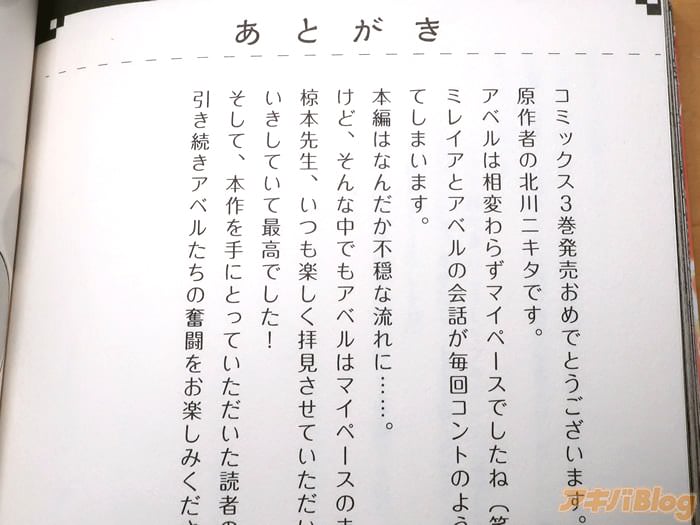 あとがき
コミックス3巻発売おめでとうございます。
原作者の北川ニキタです。
アベルは相変わらずマイペースでしたね(笑
ミレイアとアベルの会話が毎回コントのよう
てしまいます。
本編はなんだか不穏な流れに……。
けど、そんな中でもアベルはマイペースのま
椋本先生、いつも楽しく拝見させていただい
いきしていて最高でした!
そして、本作を手にとっていただいた読者の
引き続きアベルたちの奮闘をお楽しみくださ
アキバBlog